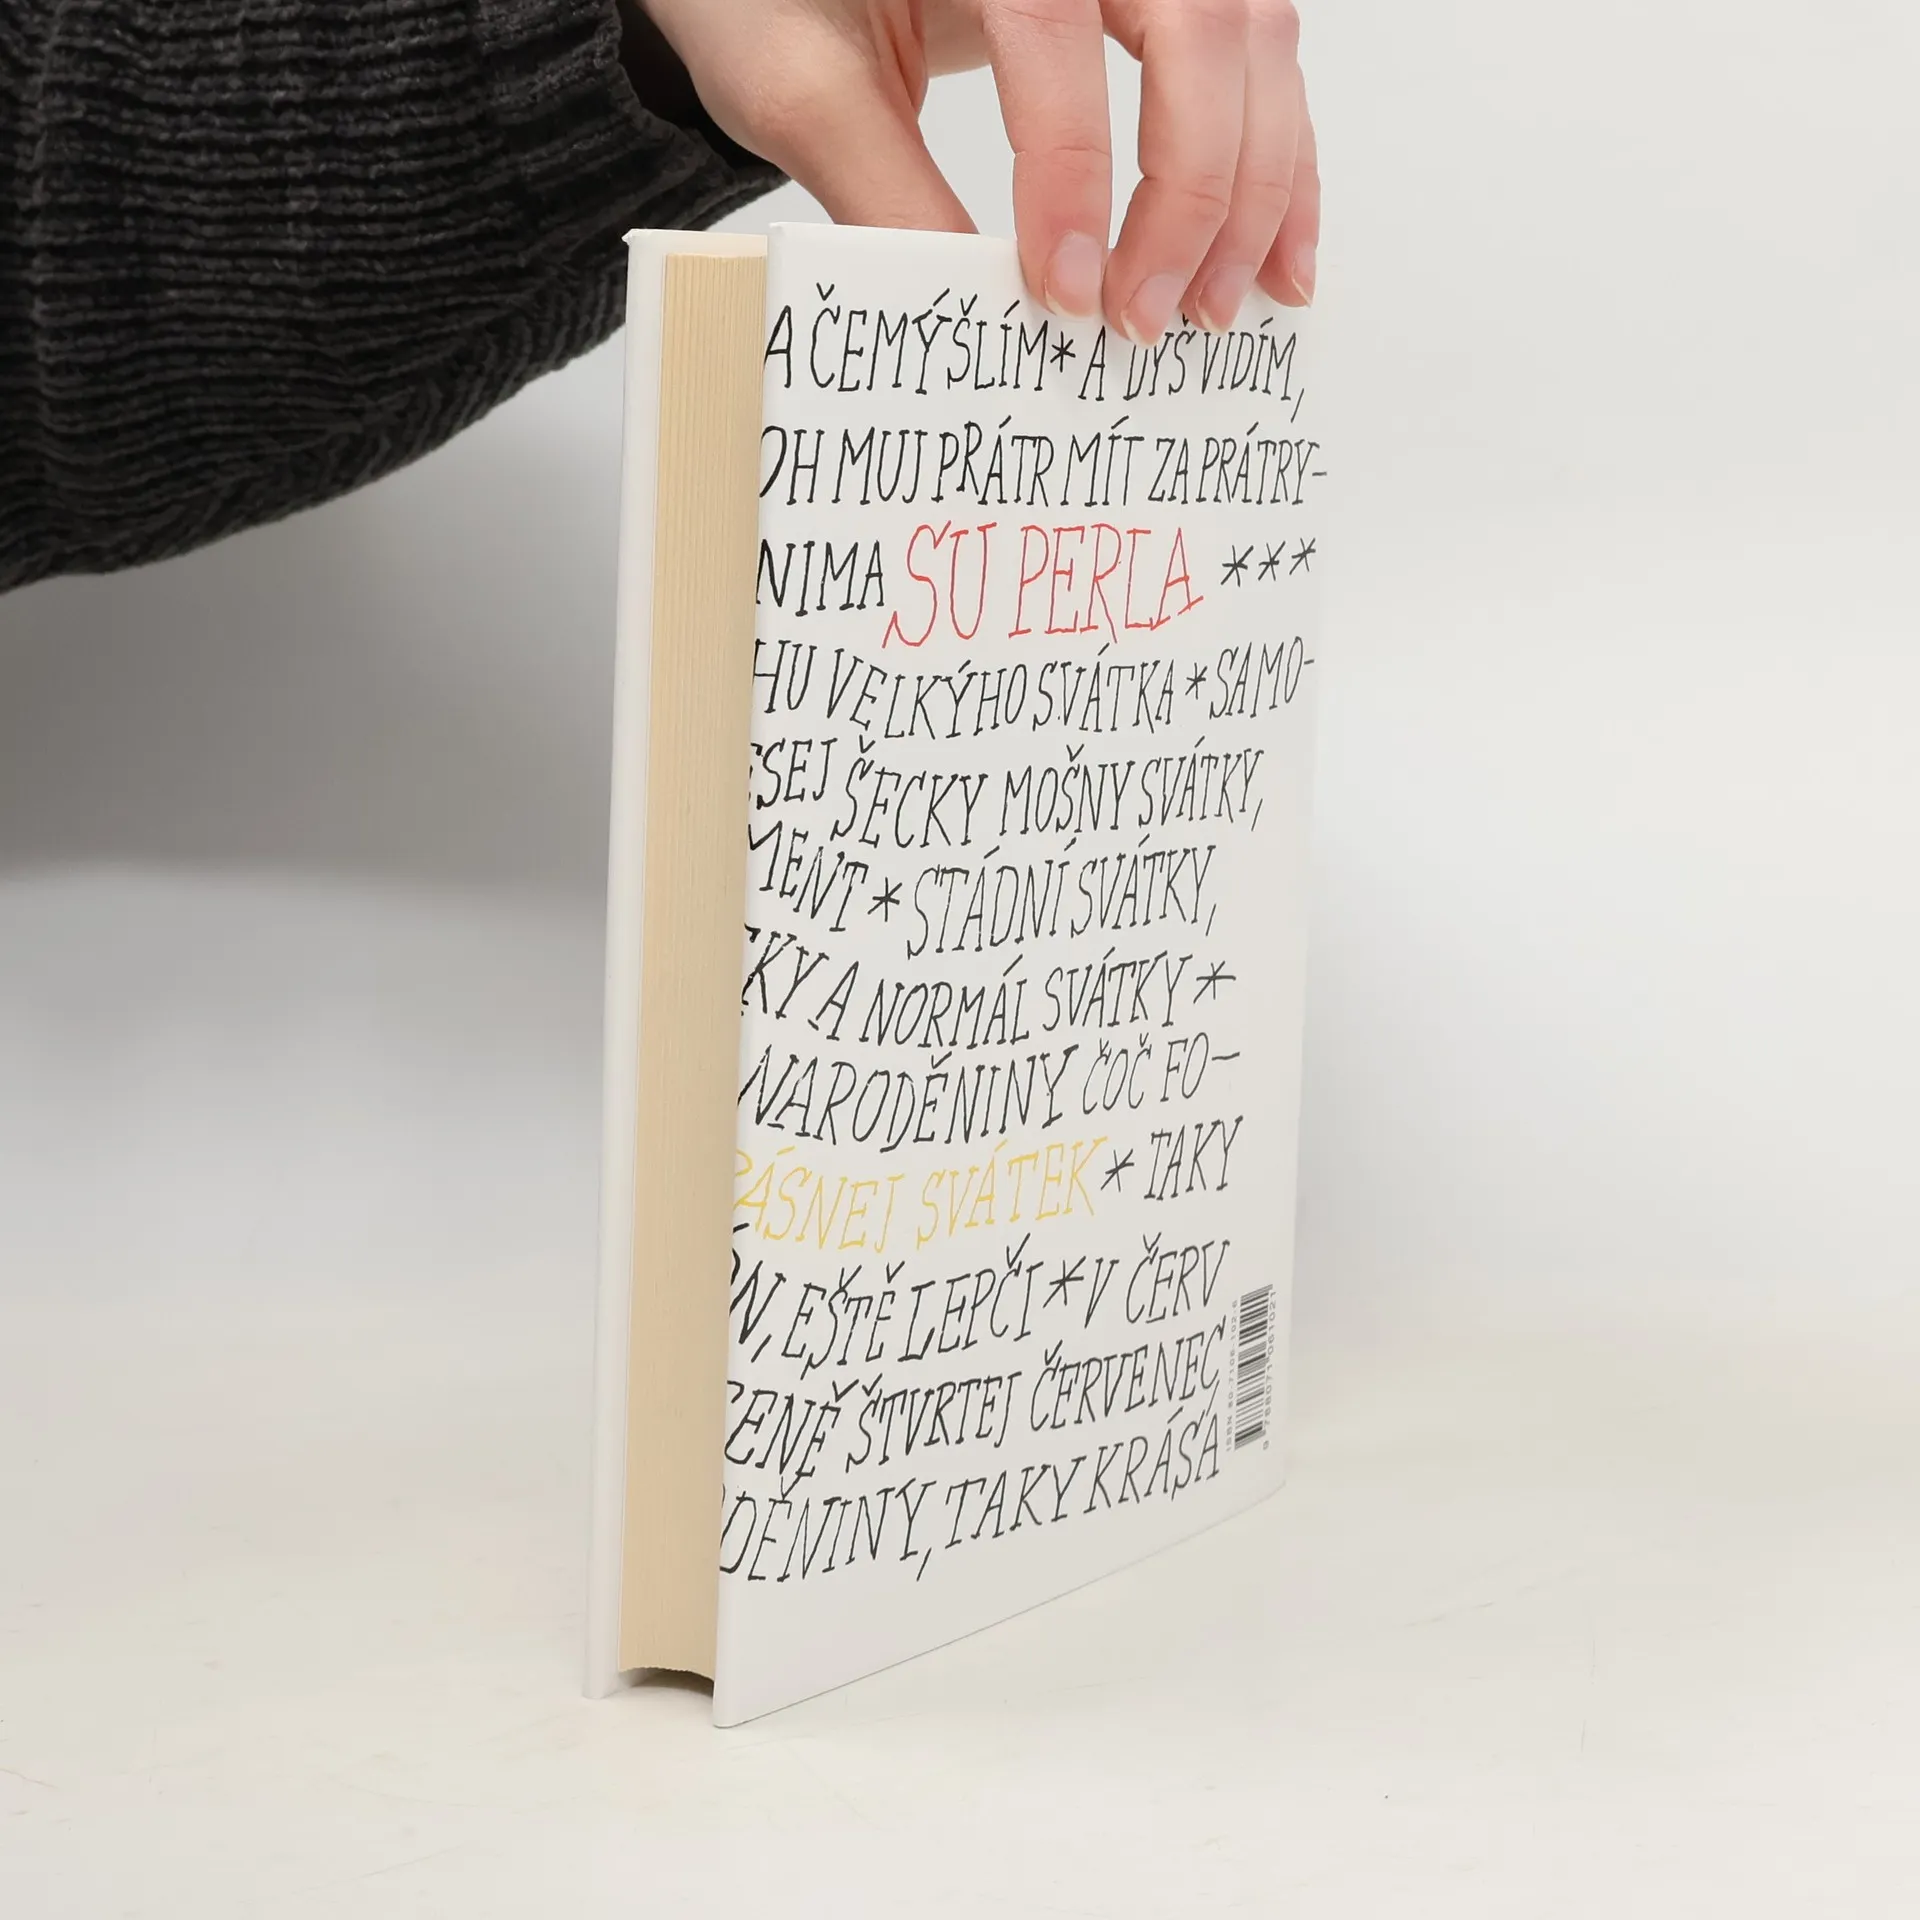 A ČEMÝŠLÍM * A DYŠ VIDÍM,
OH MUJ PRÁTR MÍT ZA PRÁTRY-
NIMA SU PERLA ***
HU VELKÝHO SVÁTKA * SAMO-
ESEJ ŠECKY MOŠNY SVÁTKY,
MENT * STÁDNÍ SVÁTKY,
KY A NORMÁL SVÁTKY *
NARODĚNINY ČOČ FO-
ÁSNEJ SVÁTEK * TAKY
N, EŠTĚ LEPČI * V ČERV
CENĚ ŠTVRTEJ ČERVENEC
DĚNINY, TAKY KRÁSA
ISBN 80-7106-102-6
9 788071 061021